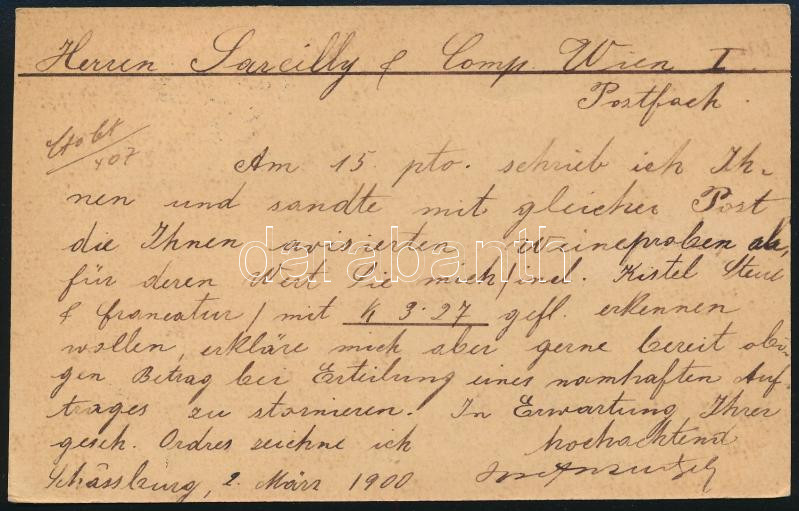 Herren Sarcilly & Comp. Wien I
Postfach.
407
Am 15. pto. schrieb ich Ih-
nen und sandte mit gleicher Post
die Ihnen avisierten Weinproben ab,
für deren Wert Sie mich /incl. Kistel Steuer
& francatur/ mit K 3.27 gefl. erkennen
wollen, erkläre mich aber gerne bereit obi-
gen Betrag bei Erteilung eines namhaften Auf-
trages zu stornieren. In Erwartung Ihrer
gesch. Ordres zeichne ich hochachtend
Schässburg, 2. März 1900
darabanth